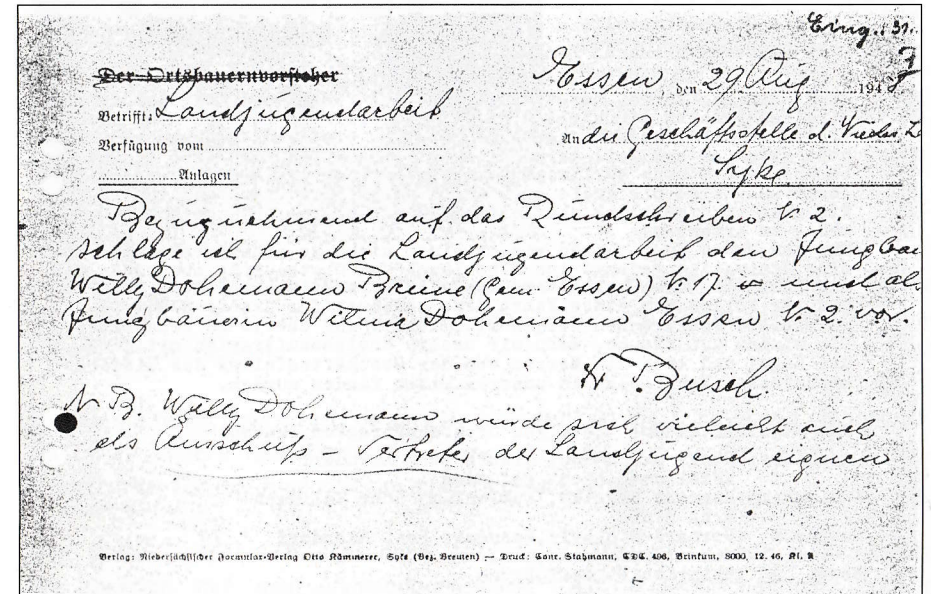 Eing. 31.
Der Ortsbauernvorsteher
Essen, den 29 Aug 1948
Betrifft: Landjugendarbeit
Verfügung vom
An die Geschäftsstelle d. Nieders. L
Anlagen
Syke
Bezugnehmend auf das Rundschreiben N. 2.
schlage ich für die Landjugendarbeit den Jungbau
Willy Dohemann Breine (Gem. Essen) N. 17. und al.
Jungbäuerin Wilma Dohemann Essen N. 2. vor.
Fr Busch.
N B. Willy Dohemann würde sich vieleicht auch
als Ausschuß - Vertreter der Landjugend eignen
Verlag: Niedersächsischer Formular-Verlag Otto Kämmerer, Syke (Bez. Bremen) — Druck: Conr. Stahmann, CDC. 496, Brinkum, 8000, 12. 46, Kl. A